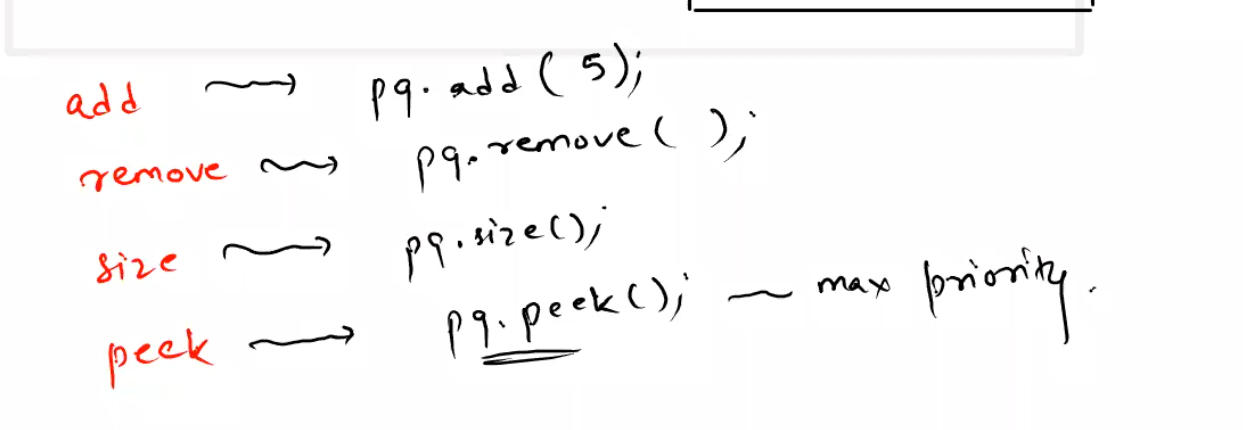 add → pq.add(5);
remove → pq.remove( );
size → pq.size();
peek → pq.peek(); — max priority.